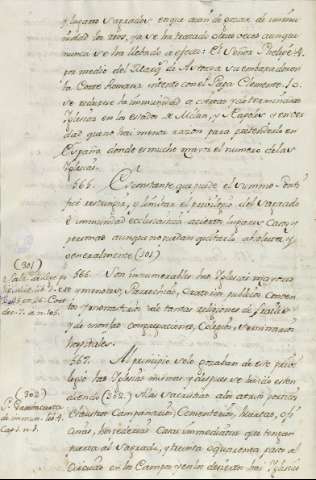 y lugares sagrados en que aian de gozar de inmu-
nidad los reos, ya se ha tratado otras veces aunque
nunca se ha llebado a efecto: El Señor Phelipe 4.
por medio del Marq. de Astorga su embaxador en
la Corte Romana intentó con el Papa Clemente 10.
se reduxese la inmunidad a ciertas y determinadas
Iglesias en los estados de Milan, y Napoles y en ver-
dad que no hai menos razon para pretenderlo en
España donde es mucho mayor el numero de las
Iglesias.
665. Constante que puede el Summo Ponti-
fice restringir, y limitar el privilegio del Sagrado
e inmunidad eclesiastica a ciertos lugares, casos y
personas aunque no pueda quitarlo absoluta y
generalmente (301)
(301)
666. Son innumerables las Iglesias mayores
Parrochias, Oratorios publicos Conven-
tos y Monasterios de tantas religiones de frailes
y de monjas congregaciones, Colegios, Seminarios
hospitales.
667. Al principio solo gozaban de este privi-
legio las Iglesias mismas y despues se ha ido esten-
diendo (302) a las Sacristias al atrio porticos
(302)
Claustros Campanarios, Cementerios, huertas, ofi-
cinas, hospederias Casas inmediatas que tengan
puerta al Sagrado, y treinta o quarenta pasos al
circuito en los Campos y en los desiertos las Iglesias